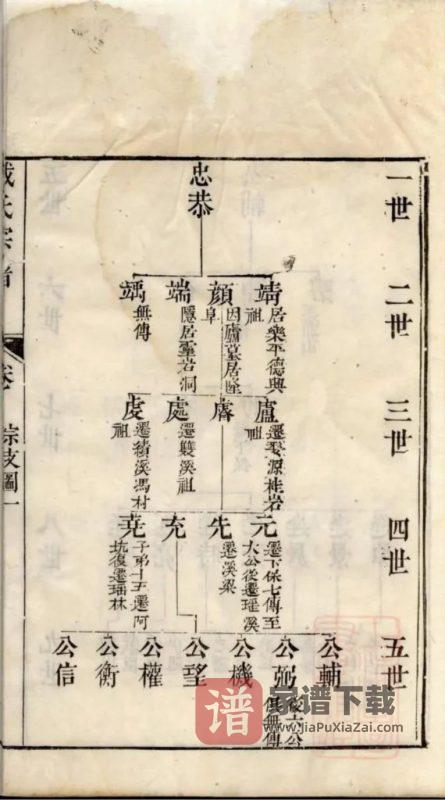 一世
二世
三世
四世
五世
忠恭
靖
居樂平德興
祖
顏
因廬墓居墜
阜
端
隱居靈岩洞
㻂
無傳
盧
遷婺源桂岩
祖
膚
處
遷雙溪祖
虔
遷績溪馮村
祖
元
遷下保七傳至
大公後遷瑶溪
先
遷溪梁
充
堯
子弟十五遷阿
坑復遷瑶林
公輔
公弼
後六公
俱無傳
公機
公望
公權
公衡
公信
戴氏宗譜
卷
綜支圖一
家谱下载
谱
www.jiaPuXiaZai.com